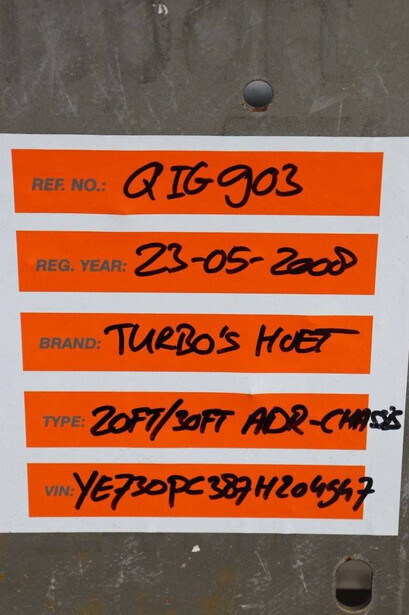 REF. NO.: QIG903
REG. YEAR: 23-05-2008
BRAND: TURBO'S HOET
TYPE: 20FT/30FT ADR-CHASSIS
VIN: YE730PC387H204947